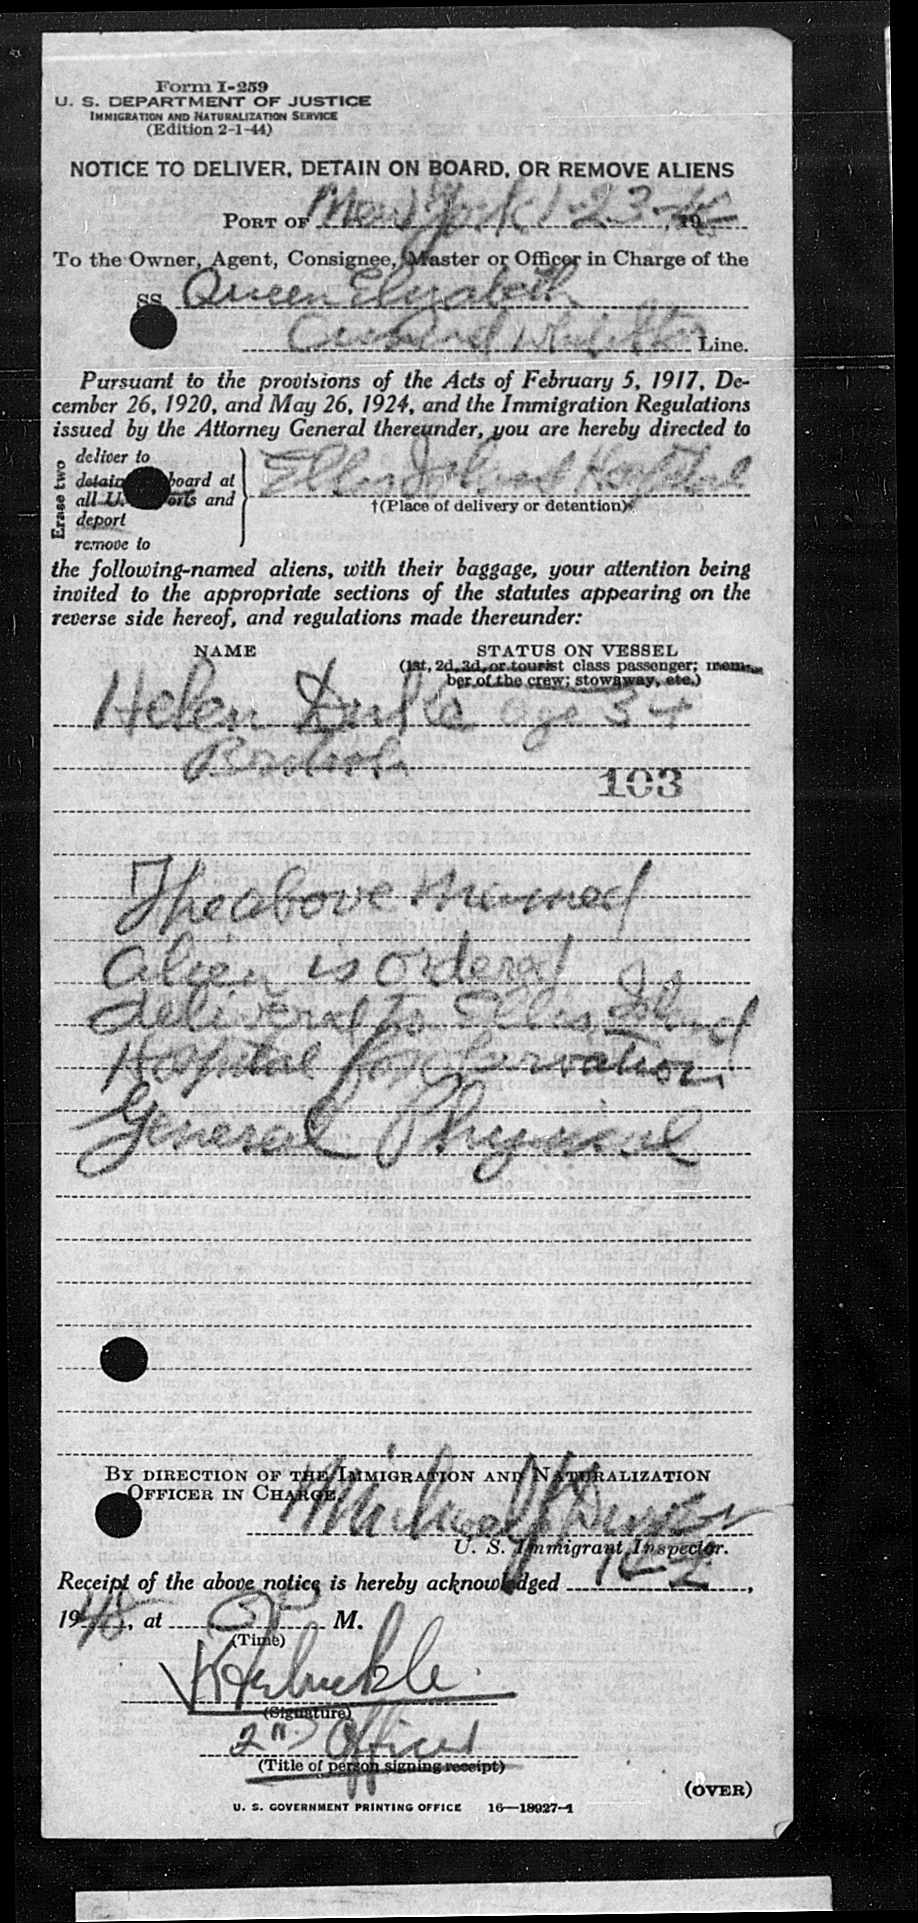 Form I-259
U. S. DEPARTMENT OF JUSTICE
IMMIGRATION AND NATURALIZATION SERVICE
(Edition 2-1-44)
NOTICE TO DELIVER, DETAIN ON BOARD, OR REMOVE ALIENS
PORT OF New York 1-23-, 19
To the Owner, Agent, Consignee, Master or Officer in Charge of the
SS Queen Elizabeth
Cunard White Star Line.
Pursuant to the provisions of the Acts of February 5, 1917, De-
cember 26, 1920, and May 26, 1924, and the Immigration Regulations
issued by the Attorney General thereunder, you are hereby directed to
Erase two
deliver to
detain board at
all U. orts and
deport
remove to
Ellis Island Hospital
†(Place of delivery or detention)
the following-named aliens, with their baggage, your attention being
invited to the appropriate sections of the statutes appearing on the
reverse side hereof, and regulations made thereunder:
NAME STATUS ON VESSEL
(1st, 2d, 3d, or tourist class passenger; mem-
ber of the crew; stowaway, etc.)
Helen age 34
103
The above named
alien is ordered
delivered to Ellis Island
Hospital for observation
General Physical
BY DIRECTION OF THE IMMIGRATION AND NATURALIZATION
OFFICER IN CHARGE.
Michael
U. S. Immigrant Inspector.
Receipt of the above notice is hereby acknowledged ,
1948, at M.
(Time)
(Signature)
2nd Officer
(Title of person signing receipt)
(OVER)
U. S. GOVERNMENT PRINTING OFFICE 16—18927-1